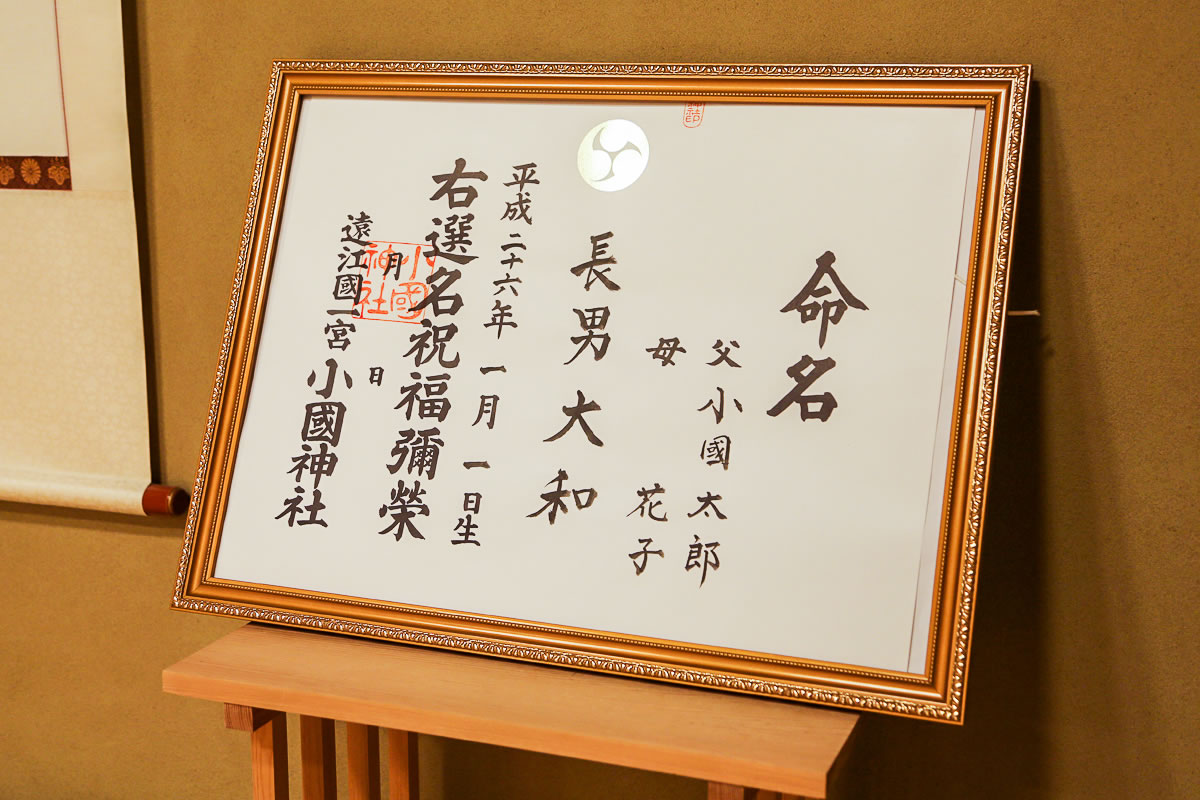 命名
父 小國 太郎
母 花子
長男 大和
平成二十六年 一月 一日生
右選名祝福彌榮
月 日
遠江國一宮 小國神社
小國神社